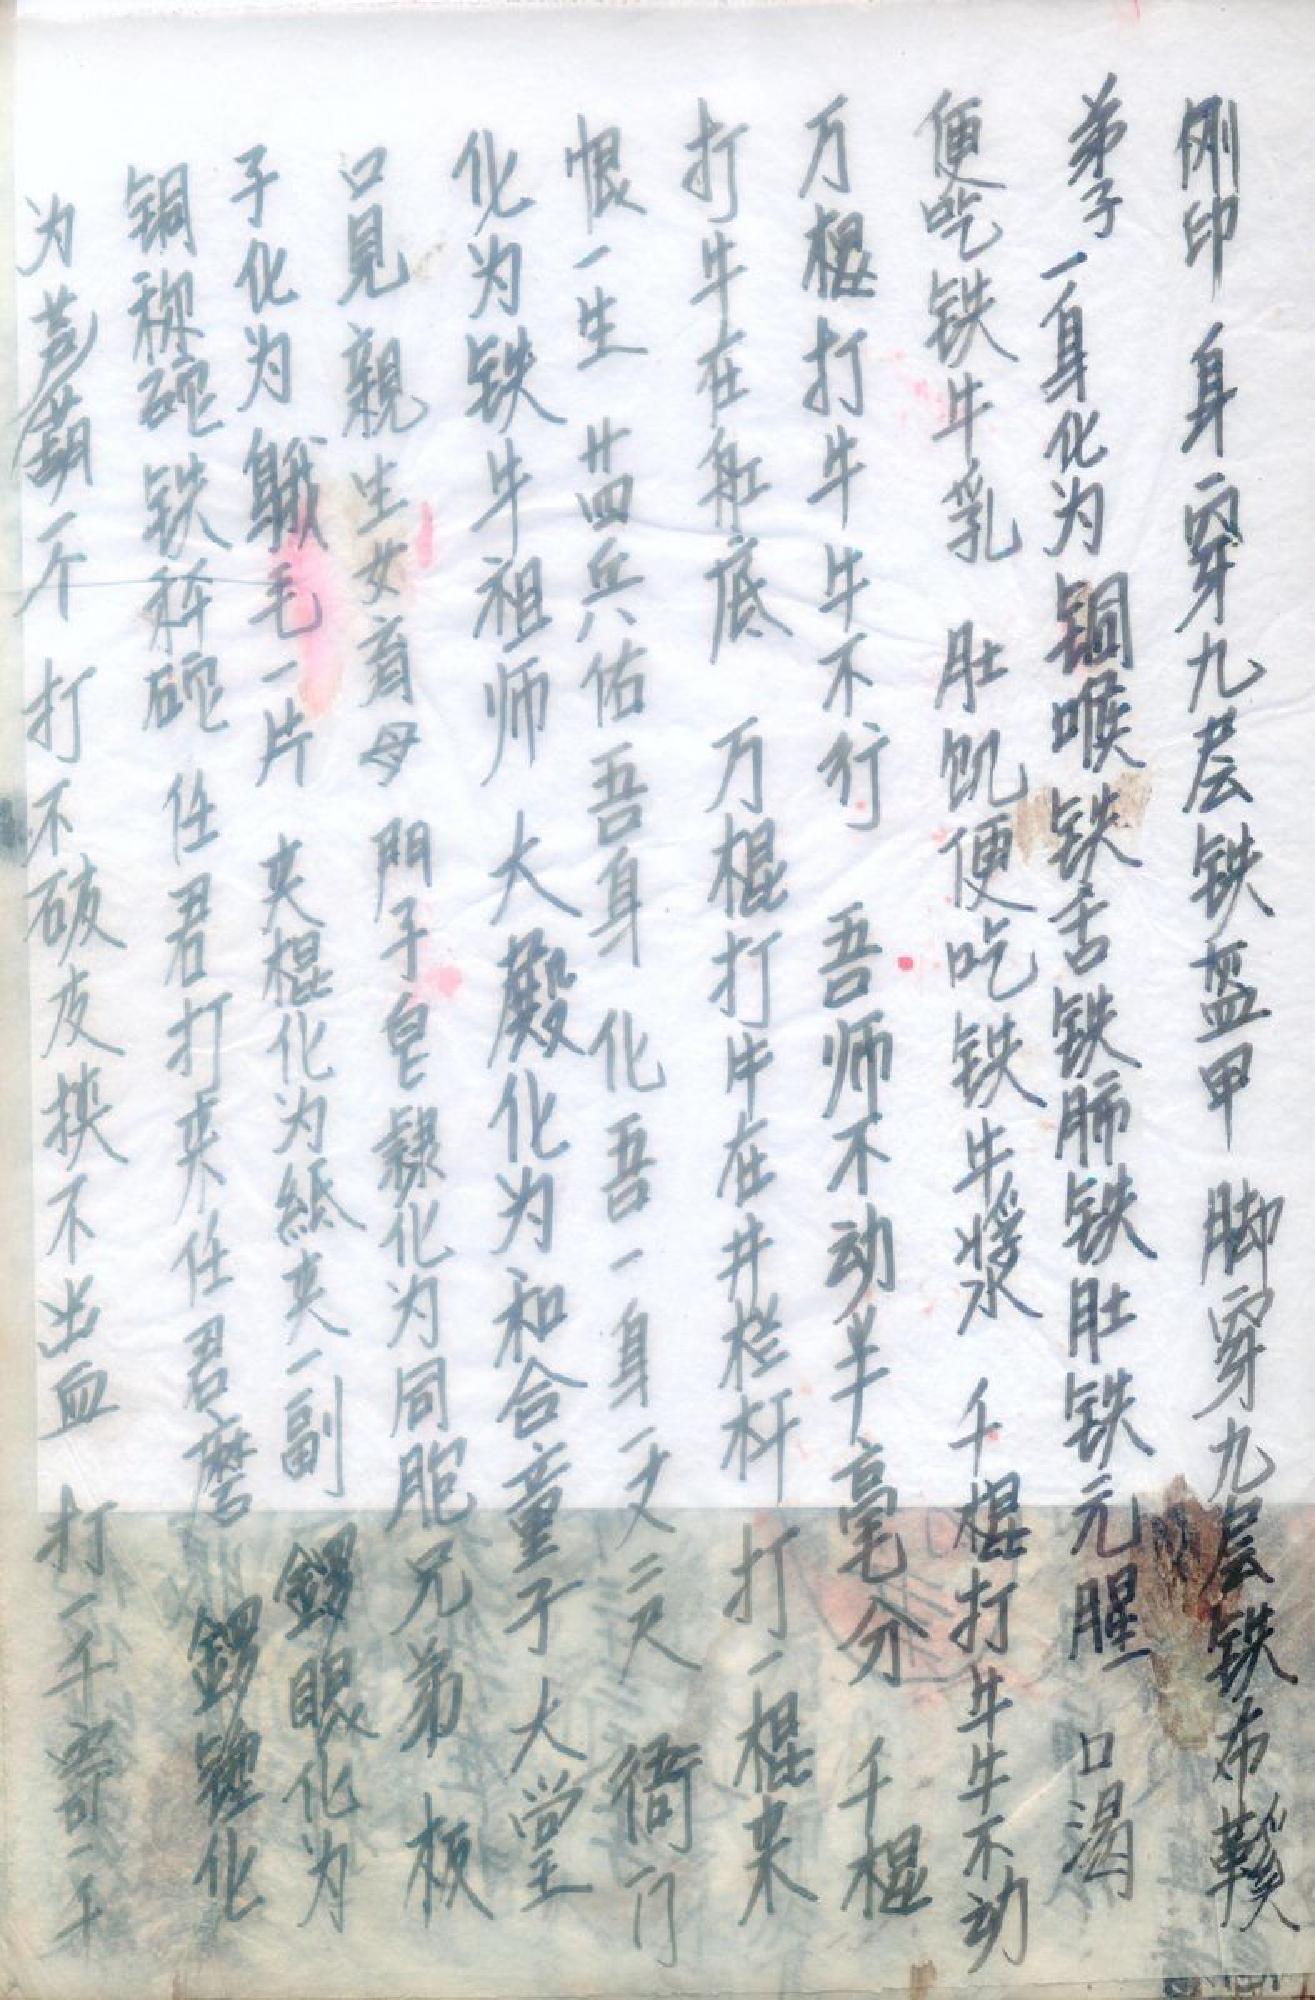 刚印 身穿九层铁盔甲 脚穿九层铁布鞋
弟子一身化为铜喉铁舌铁肺铁肚铁元腥 口渴
便吃铁牛乳 肚饥便吃铁牛浆 千棍打牛牛不动
万棍打牛牛不行 吾师不动半毫分 千棍
打牛在缸底 万棍打牛在井栏杆 打一棍来
恨一生 廿四兵佑吾身 化吾一身一丈二尺 衙门
化为铁牛祖师 大殿化为和合童子大堂
口見親生女育母 門子皂隸化为同胞兄弟 板
子化为鵝毛一片 夹棍化为紙夹一副 鑼眼化为
铜称砣铁称砣 任君打来任君磨 鑼锤化
为芦葫一个 打不破皮挨不出血 打一千寄二千